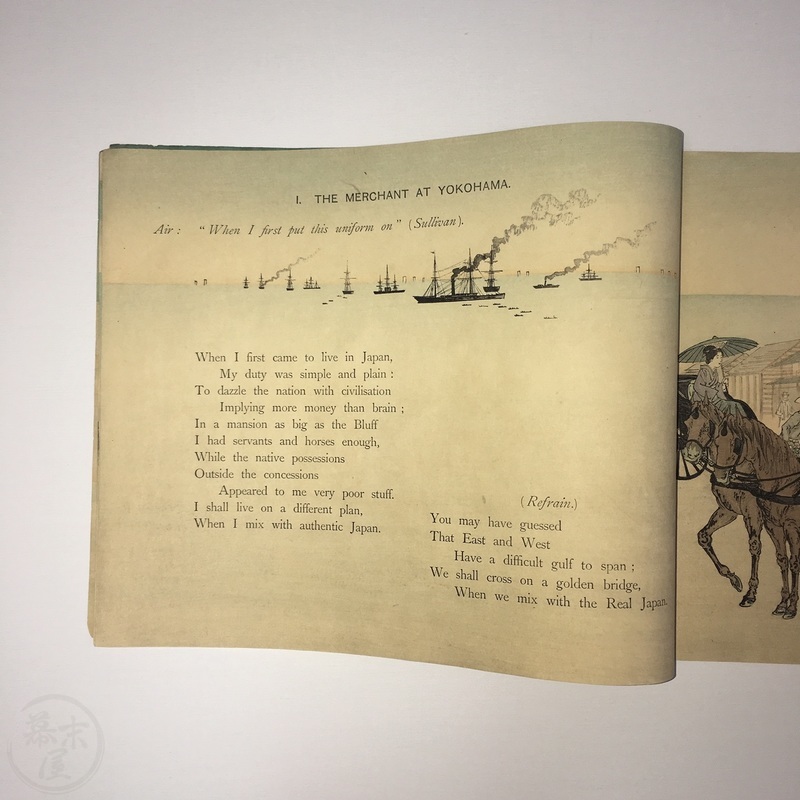 I. THE MERCHANT AT YOKOHAMA.
Air: "When I first put this uniform on" (Sullivan).
When I first came to live in Japan,
My duty was simple and plain:
To dazzle the nation with civilisation
Implying more money than brain;
In a mansion as big as the Bluff
I had servants and horses enough,
While the native possessions
Outside the concessions
Appeared to me very poor stuff.
I shall live on a different plan,
When I mix with authentic Japan.
(Refrain.)
You may have guessed
That East and West
Have a difficult gulf to span;
We shall cross on a golden bridge,
When we mix with the Real Japan.
幕末屋